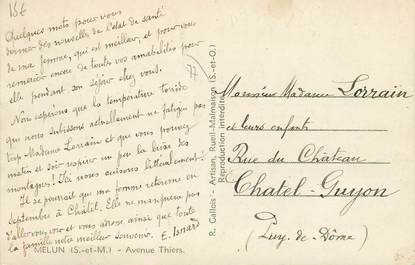 15€
Quelques mots pour vous
donner des nouvelles de l'état de santé
de ma femme, qui est meilleur, et pour vous
remercier encore de toutes vos amabilités pour
elle pendant son séjour chez vous.
Nous espérons que la température torride
que nous subissons actuellement ne fatigue pas
trop Madame Lorrain et que vous pouvez
matin et soir respirer un peu la brise des
montagnes! Ici nous cuisons littéralement!
Il se pourrait que ma femme retourne en
septembre à Châtel. Elle ne manquera pas
d'aller vous voir et vous adresse ainsi que toute
la famille notre meilleur souvenir. E. Isnard
MELUN (S.-et-M.) - Avenue Thiers.
R. Gallois - Artisan, Rueil-Malmaison (S.-et-O.)
Reproduction interdite
Monsieur Madame Lorrain
et leurs enfants
Rue du Château
Chatel-Guyon
(Puy-de-Dôme)